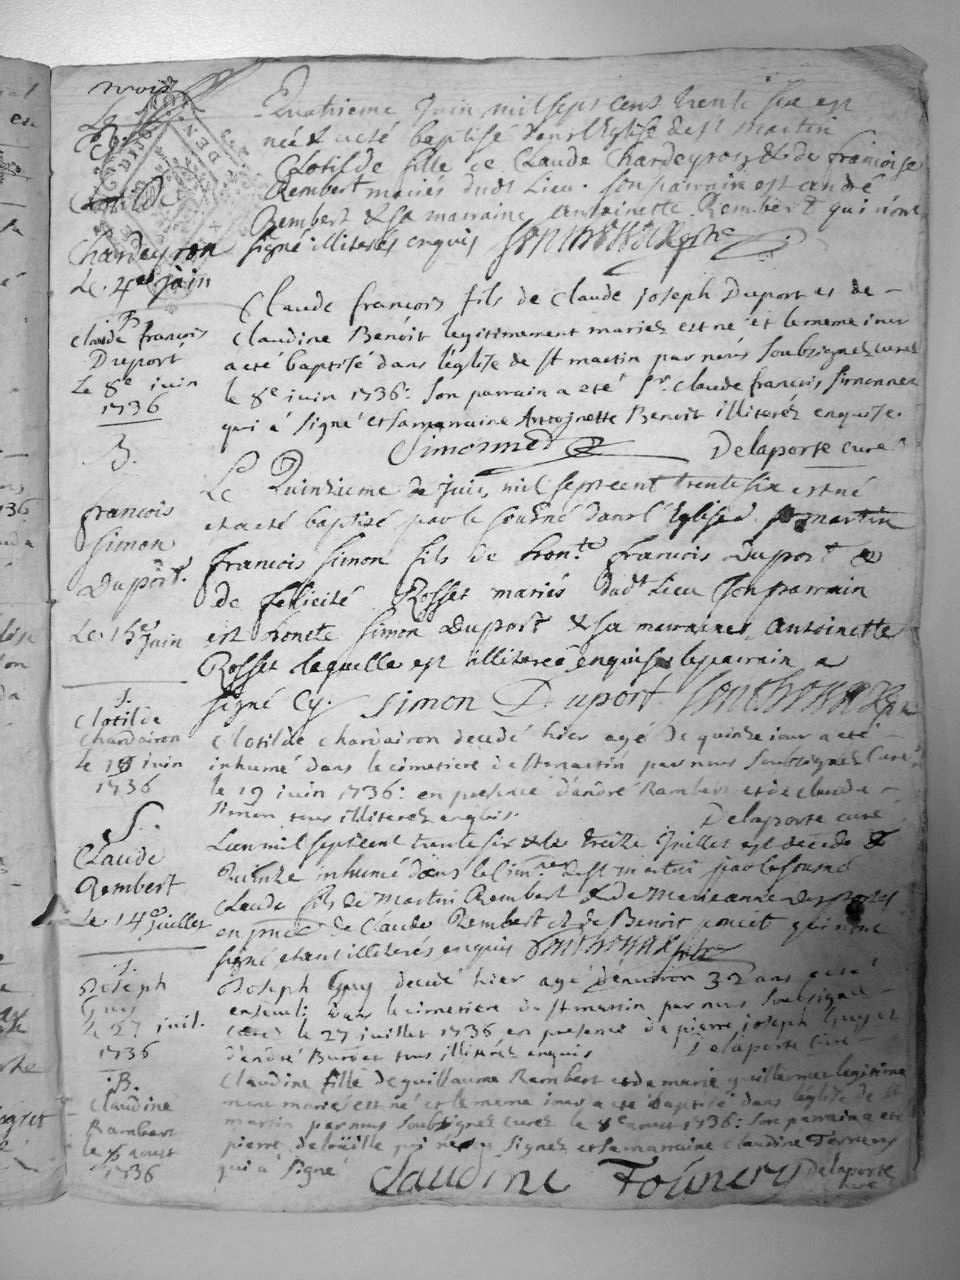 Clotilde
Chardeyron
Le 4e juin
quatrieme juin mil sept cens trente six est
née & a eté baptisé dans l'Eglise de st martin
Clotilde fille de Claude Chardeyron & de francoise
Rembert mariés dudt Lieu. son parrain est andré
Rembert & sa marraine Antoinette Rembert qui n'ont
signé illiterés enquis
B.
claude francois
Duport
Le 8e juin
1736
Claude francois fils de claude joseph Duport et de
claudine Benoit legitimement mariez est né et le meme jour
a eté baptisé dans l'église de st martin par nous soubsigné curé
le 8e juin 1736: son parrain a eté sr. claude francois simonnet
qui a signé et sa maraine Antoinette Benoit illiteréz enquise.
Simonnet Delaporte curé
B.
francois
simon
Duport.
Le 15e juin
Le Quinzieme de juin mil sept cent trente six est né
et a eté baptisé par le sousné dans l'Eglise st martin
francois simon fils de hon.te francois Duport &
de felicité Rosset mariés dudt Lieu son parrain
est honete simon Duport & sa marraine Antoinette
Rosset laquelle est illiterée enquise le parrain a
signé Cy. Simon Duport
S.
Clotilde
chardairon
le 19 juin
1736
Clotilde chardairon decedé hier agé de quinze jour a eté
inhumé dans le cimetiere de st martin par nous soubsigné Curé
le 19 juin 1736: en presence d'andré Rambert et de claude
simon tous illiteréz enquis. Delaporte curé
S.
Claude
Rembert
Le 14e juillet
L'an mil sept cent trente six & le treize juillet est decedé &
inhumé dans le cim.re de st martin par le sousné
Claude fils de Martin Rembert & de Marieanne
en pnce de Claude Rembert & de Benoit poncet qui n'ont
signé etant illiterés enquis
S.
Joseph
Guy
le 27 juil.
1736
Joseph Guy decedé hier agé d'environ 32 ans a eté
enseveli dans le cimetiere de st martin par nous soubsigné
curé le 27 juillet 1736 en presence de pierre joseph Guy et
d'andré Burdet tous illiteréz enquis Delaporte curé
B.
Claudine
Rambert
le 8 aoust
1736
Claudine fille de guillaume Rambert et de marie guillermet legitime
ment mariés est né et le meme jour a eté baptisé dans l'église de st
martin par nous soubsignéz curéz le 8e aoust 1736: son parrain a eté
pierre qui n'a signez et sa maraine claudine
qui a signé Claudine Delaporte
curé